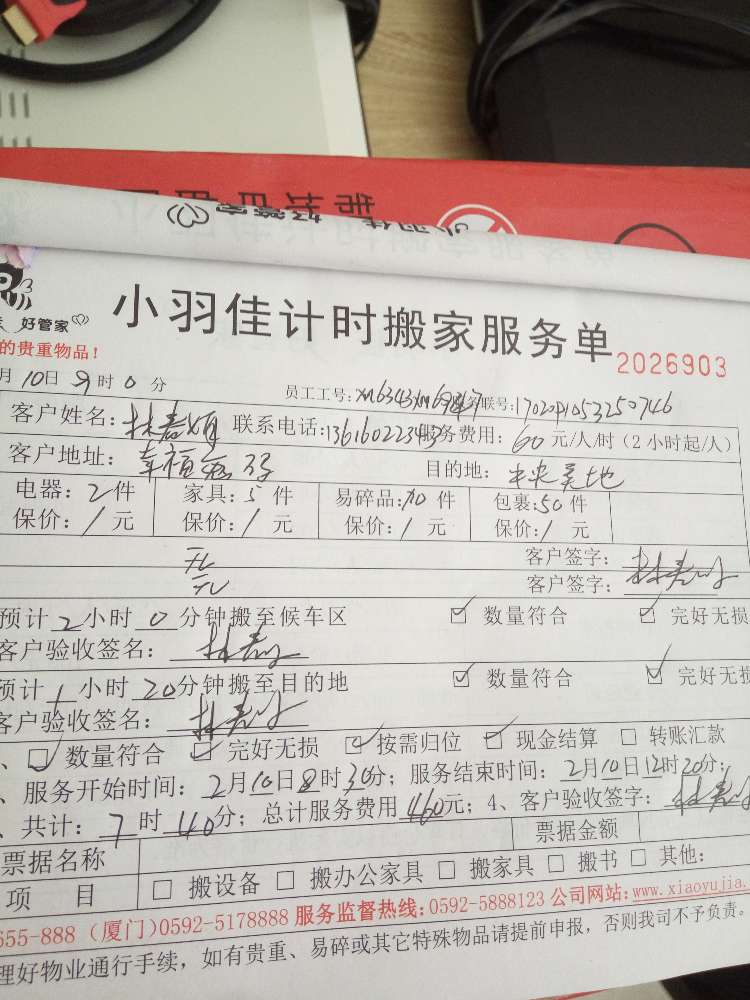 好管家
小羽佳计时搬家服务单
2026903
的贵重物品！
月10日9时0分
员工工号：xm6343xm6947
联号：17020410533250746
客户姓名：林 联系电话：13616022343 服务费用：60元/人/时（2小时起/人）
客户地址：幸福 目的地：
电器：2件 家具：5件 易碎品：10件 包裹：50件
保价：/元 保价：/元 保价：/元 保价：/元
无 客户签字：林
无 客户签字：林
预计2小时0分钟搬至候车区 ☑ 数量符合 ☑ 完好无损
客户验收签名：林
预计1小时20分钟搬至目的地 ☑ 数量符合 ☑ 完好无损
客户验收签名：林
、☑ 数量符合 ☑ 完好无损 ☑ 按需归位 ☑ 现金结算 □ 转账汇款
、服务开始时间：2月10日8时30分；服务结束时间：2月10日12时20分；
、共计：7时40分；总计服务费用460元；4、客户验收签字：林
票据名称 票据金额
项 目 □ 搬设备 □ 搬办公家具 □ 搬家具 □ 搬书 □ 其他：
655-888（厦门）0592-5178888 服务监督热线：0592-5888123 公司网站：www.xiaoyujia.
理好物业通行手续，如有贵重、易碎或其它特殊物品请提前申报，否则我司不予负责。